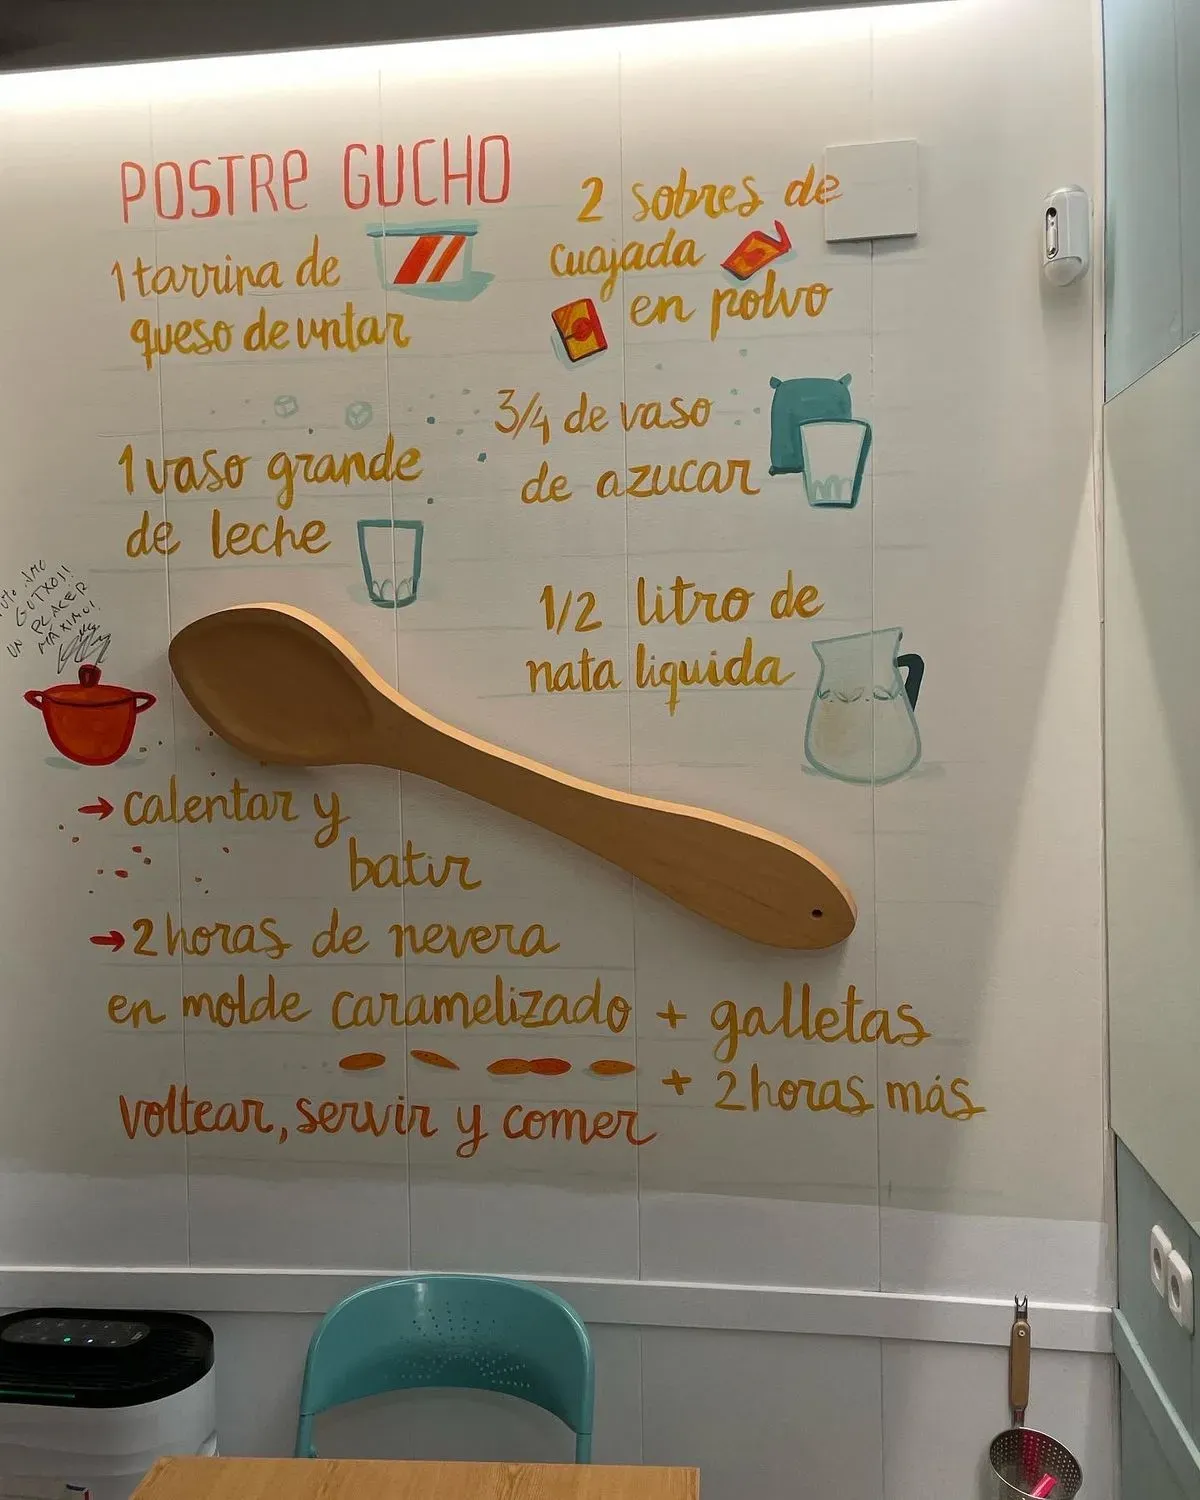 POSTRE GUCHO
1 tarrina de
queso de untar
2 sobres de
cuajada
en polvo
1 vaso grande
de leche
3/4 de vaso
de azucar
1/2 litro de
nata liquida
GUTXO!!
UN PLACER
MÁXIMO!
→ calentar y
batir
→ 2 horas de nevera
en molde caramelizado + galletas
+ 2 horas más
voltear, servir y comer